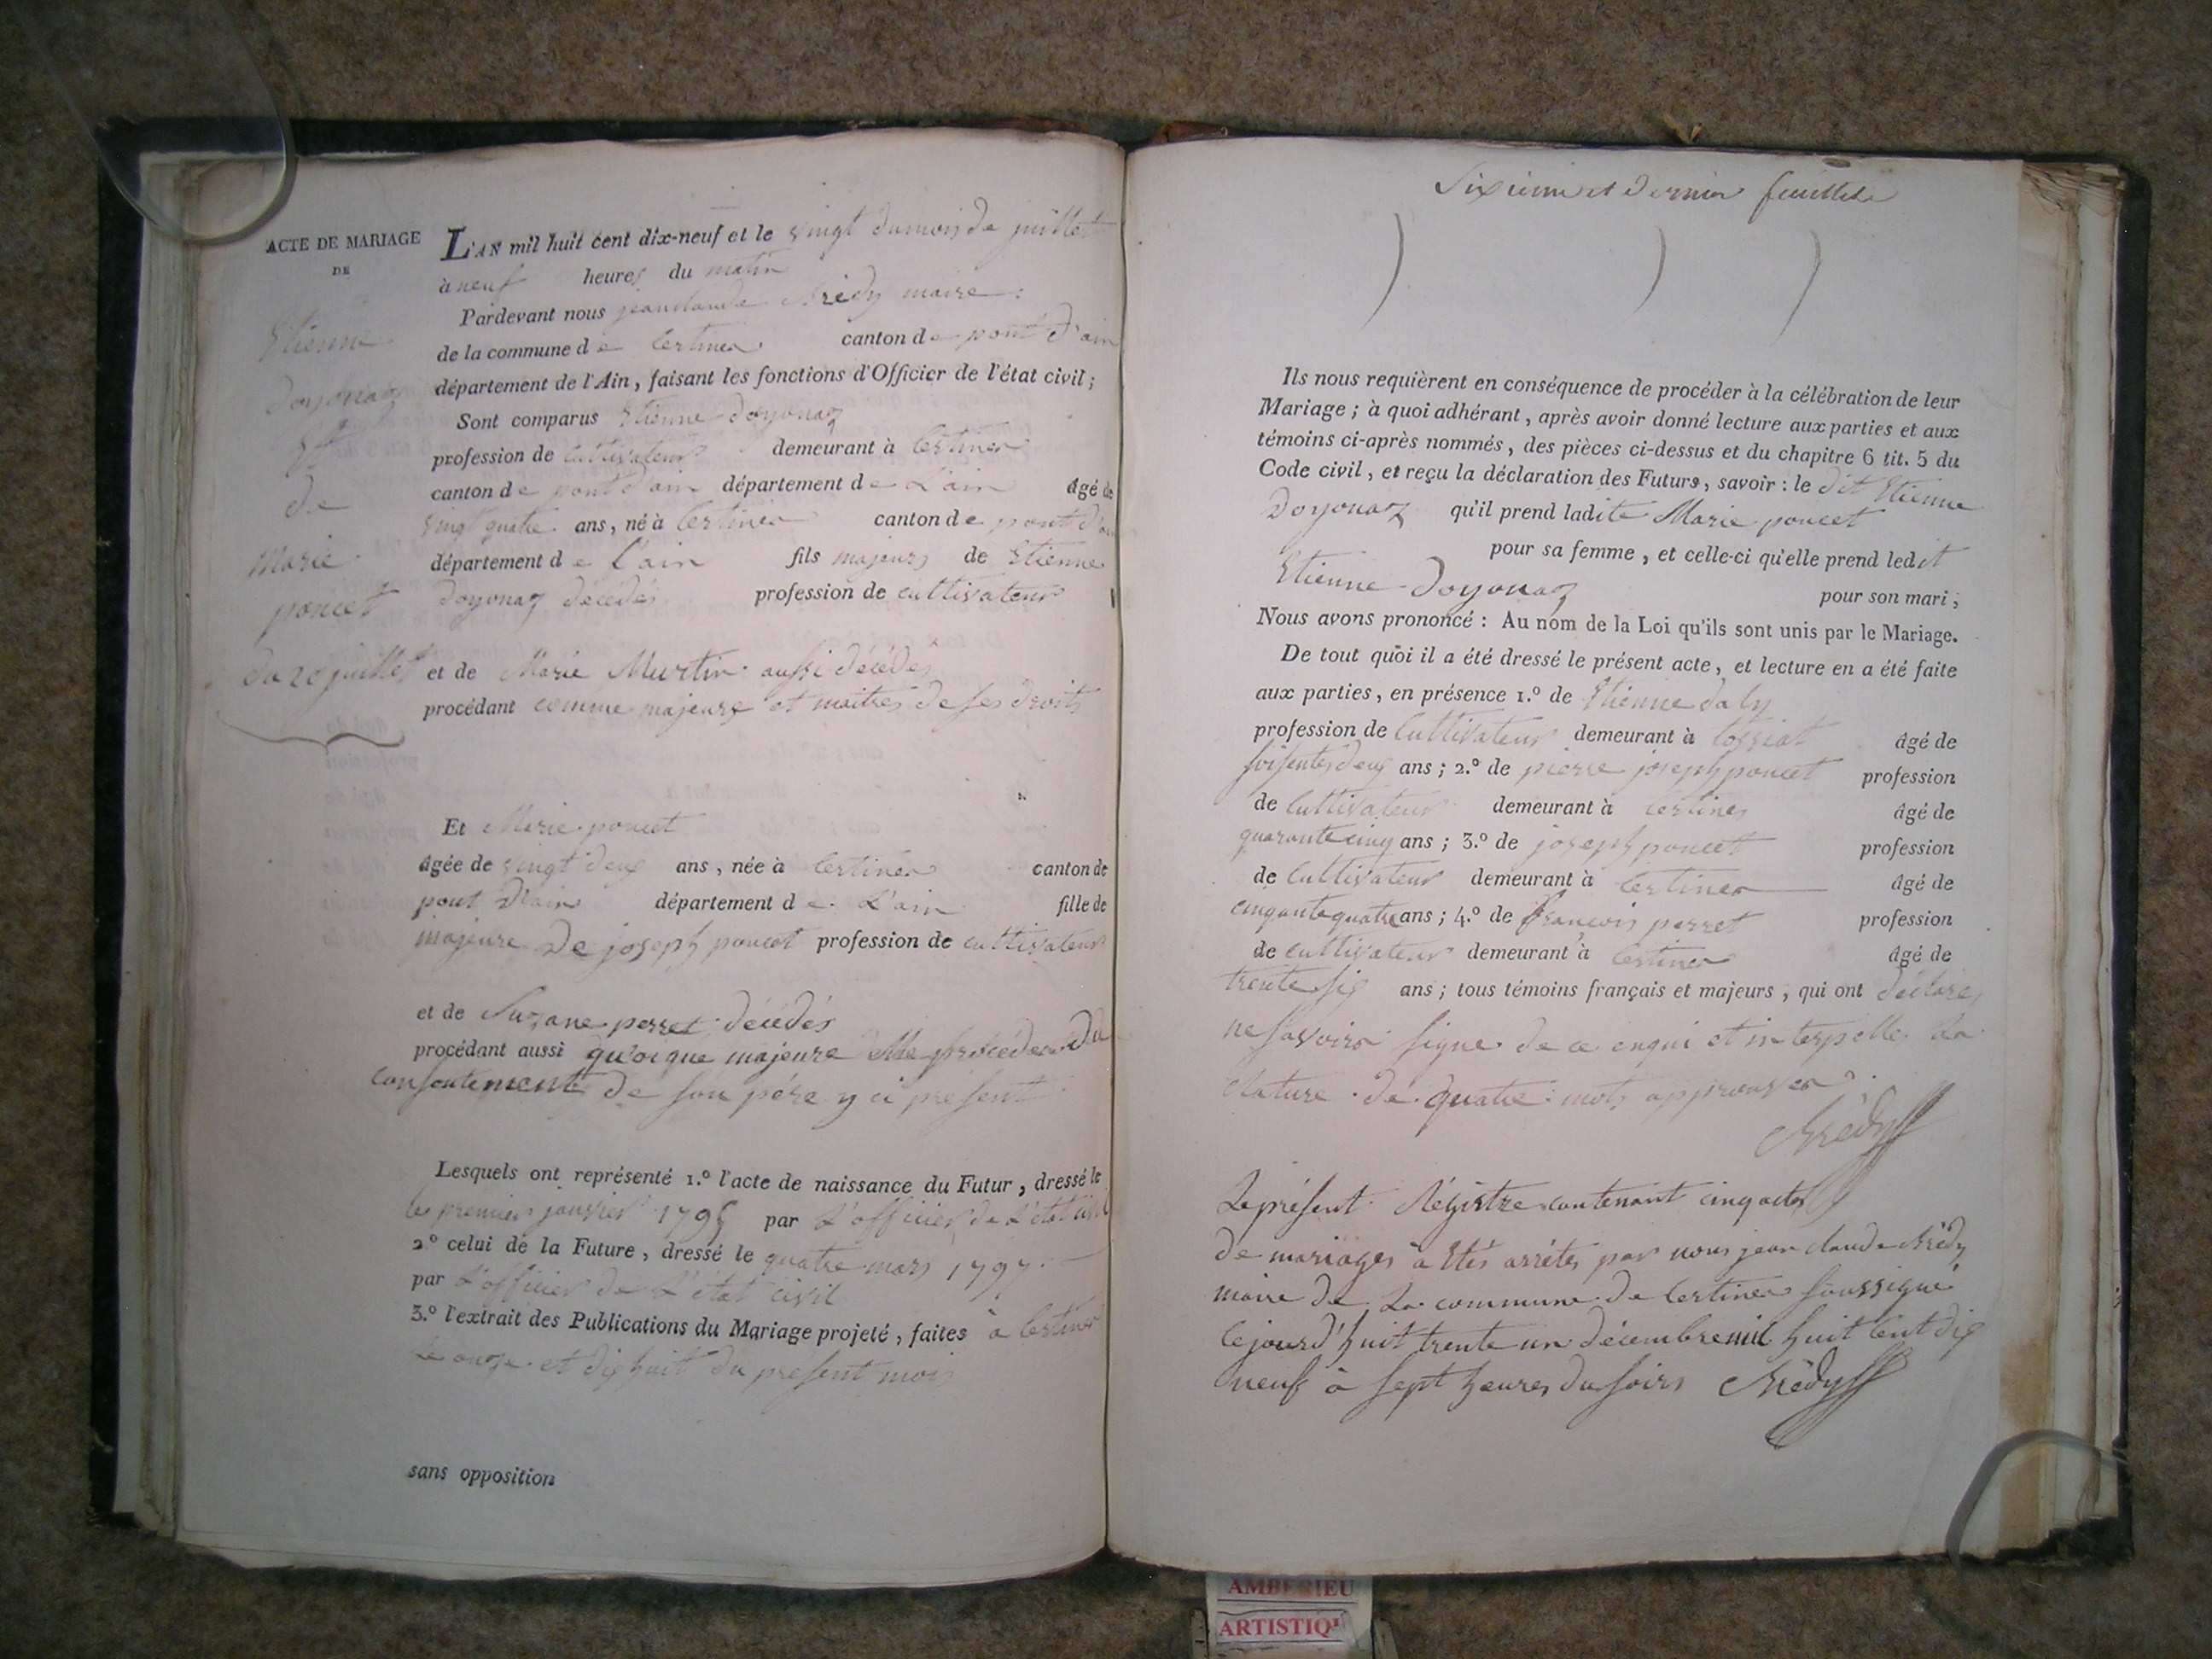 ACTE DE MARIAGE
DE
Etienne
Doyonaz
Et
de
Marie
poncet
du 20 juillet
L'AN mil huit cent dix-neuf et le vingt du mois de juillet
à neuf heures du matin
Pardevant nous jean claude maire
de la commune de Certines canton de pont d'ain
département de l'Ain, faisant les fonctions d'Officier de l'état civil;
Sont comparus Etienne Doyonaz
profession de Cultivateur demeurant à Certines
canton de pont d'ain département de L'ain âgé de
vingt quatre ans, né à Certines canton de pont d'ain
département de l'ain fils majeurs de Etienne
Doyonaz décédés profession de cultivateur
et de Marie Murtin aussi décédés
procédant comme majeurs et maitres de ses droits
Et Marie poncet
âgée de vingt deux ans, née à Certines canton de
pont D'ain département de L'ain fille de
majeure De joseph poncet profession de cultivateur
et de Suzane perret décédés
procédant aussi quoique majeure Elle procéde du
consentement de son père y ci présent
Lesquels ont représenté 1.º l'acte de naissance du Futur, dressé le
le premier janvier 1795 par L'officier de L'état civil
2.º celui de la Future, dressé le quatre mars 1797
par L'officier de L'état civil
3.º l'extrait des Publications du Mariage projeté, faites à Certines
Le onze et dix huit du présent mois
sans opposition
Sixième et Dernier feuillets
Ils nous requièrent en conséquence de procéder à la célébration de leur
Mariage; à quoi adhérant, après avoir donné lecture aux parties et aux
témoins ci-après nommés, des pièces ci-dessus et du chapitre 6 tit. 5 du
Code civil, et reçu la déclaration des Futurs, savoir: le dit Etienne
Doyonaz qu'il prend ladite Marie poncet
pour sa femme, et celle-ci qu'elle prend ledit
Etienne Doyonaz pour son mari;
Nous avons prononcé: Au nom de la Loi qu'ils sont unis par le Mariage.
De tout quoi il a été dressé le présent acte, et lecture en a été faite
aux parties, en présence 1.º de Etienne daly
profession de Cultivateur demeurant à tossiat âgé de
soisentes deux ans; 2.º de pierre joseph poncet profession
de Cultivateur demeurant à certines âgé de
quarante cinq ans; 3.º de joseph poncet profession
de Cultivateur demeurant à Certines âgé de
cinquante quatre ans; 4.º de francois perret profession
de cultivateur demeurant à Certines âgé de
trente six ans; tous témoins français et majeurs, qui ont déclare
ne savoire signe de ce enqui et interpelle La
Rature de quatre mots approuver
Le présent Régistre contenant cinq actes
de mariages à étés arrétés par nous jean claude
maire de La commune de Certines soussigné
cejourd'huit trente un décembre mil huit cent dix
neuf à sept heures du soirs
AMBERIEU
ARTISTIQ